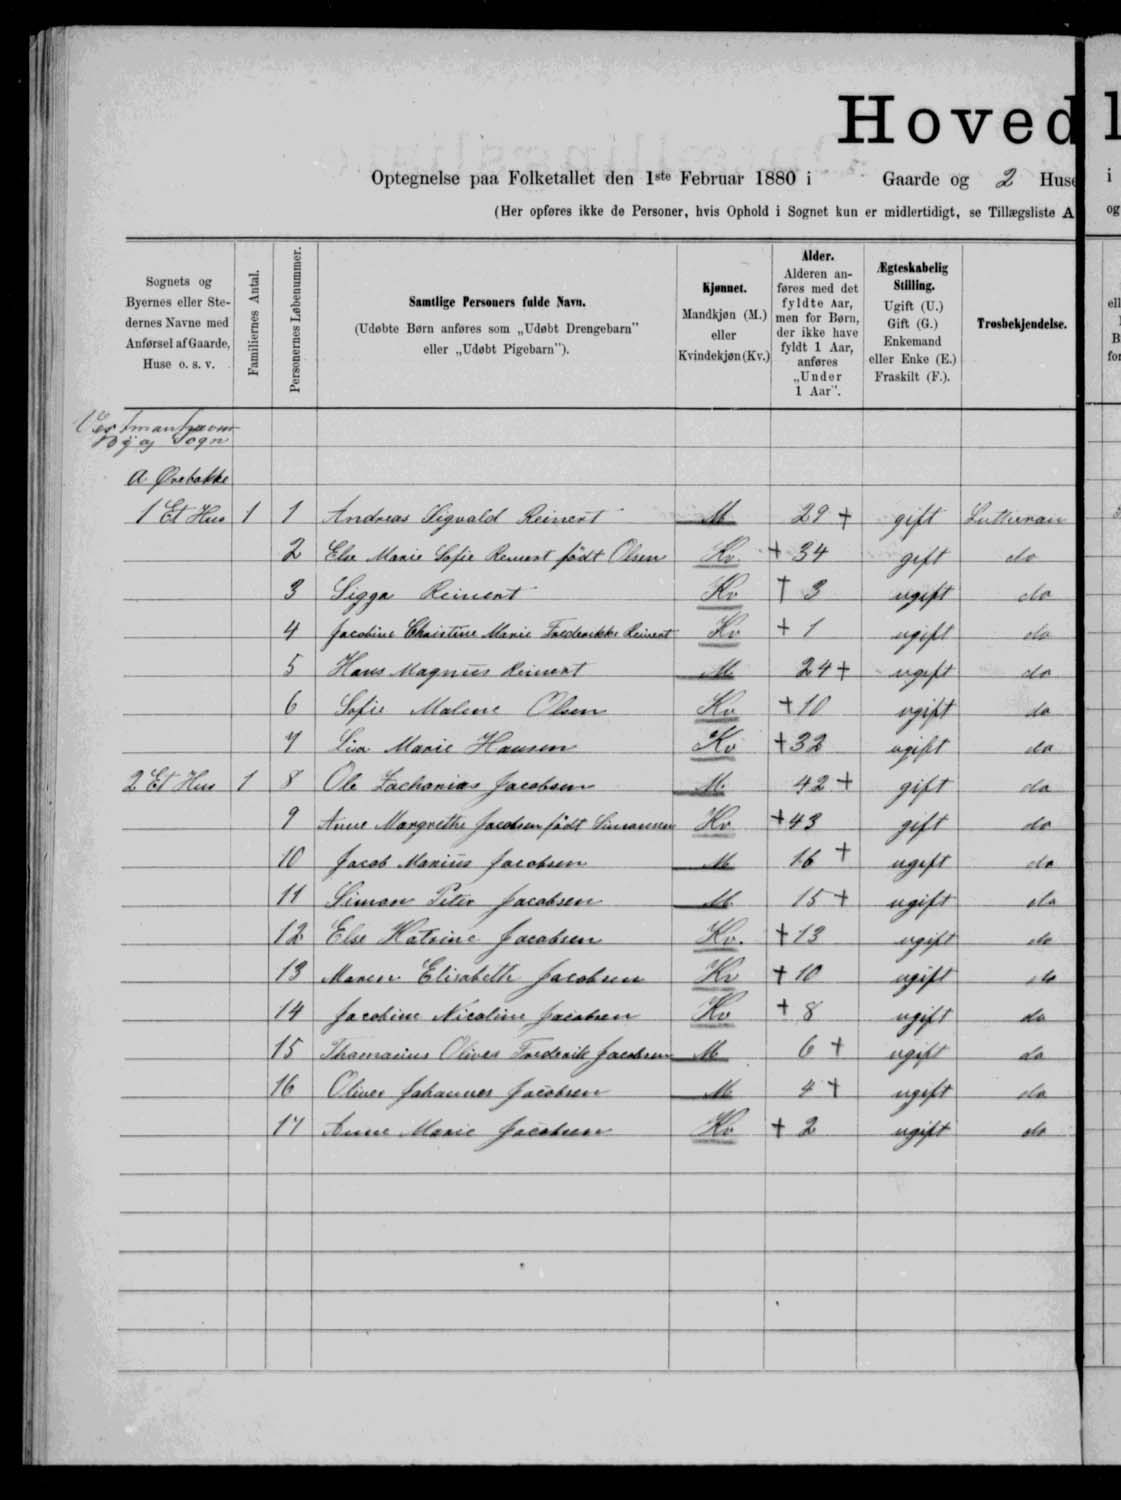 Hoved
Optegnelse paa Folketallet den 1ste Februar 1880 i Gaarde og 2 Huse
(Her opføres ikke de Personer, hvis Ophold i Sognet kun er midlertidigt, se Tillægsliste A
Sognets og
Byernes eller Ste-
dernes Navne med
Anførsel af Gaarde,
Huse o. s. v.
Familiernes Antal.
Personernes Løbenummer.
Samtlige Personers fulde Navn.
(Udøbte Børn anføres som „Udøbt Drengebarn”
eller „Udøbt Pigebarn”).
Kjønnet.
Mandkjøn (M.)
eller
Kvindekjøn (Kv.)
Alder.
Alderen an-
føres med det
fyldte Aar,
men for Børn,
der ikke have
fyldt 1 Aar,
anføres
„Under
1 Aar”.
Ægteskabelig
Stilling.
Ugift (U.)
Gift (G.)
Enkemand
eller Enke (E.)
Fraskilt (F.).
Trosbekjendelse.
Vestmanhavn
By og Sogn
A Ørebakke
1 Et Hus 1 1 Andreas Sigvald Reinert M 29 + gift Lutheran
2 Else Marie Sofie Reinert født Olsen Kv. + 34 gift do
3 Sigga Reinert Kv + 3 ugift do
4 Jacobine Christine Marie Frederikke Reinert Kv + 1 ugift do
5 Hans Magnus Reinert M 24 + ugift do
6 Sofie Malene Olsen Kv + 10 ugift do
7 Marie Hansen Kv + 32 ugift do
2 Et Hus 1 8 Ole Zacharias Jacobsen M. 42 + gift do
9 Anne Margrethe Jacobsen født Simonsen Kv + 43 gift do
10 Jacob Marius Jacobsen M 16 + ugift do
11 Simon Peter Jacobsen M 15 + ugift do
12 Else Katrine Jacobsen Kv. + 13 ugift do
13 Maren Elisabeth Jacobsen Kv + 10 ugift do
14 Jacobine Nicoline Jacobsen Kv + 8 ugift do
15 Thomasius Oliver Frederik Jacobsen M 6 + ugift do
16 Oliver Johannes Jacobsen M 4 + ugift do
17 Anne Marie Jacobsen Kv + 2 ugift do